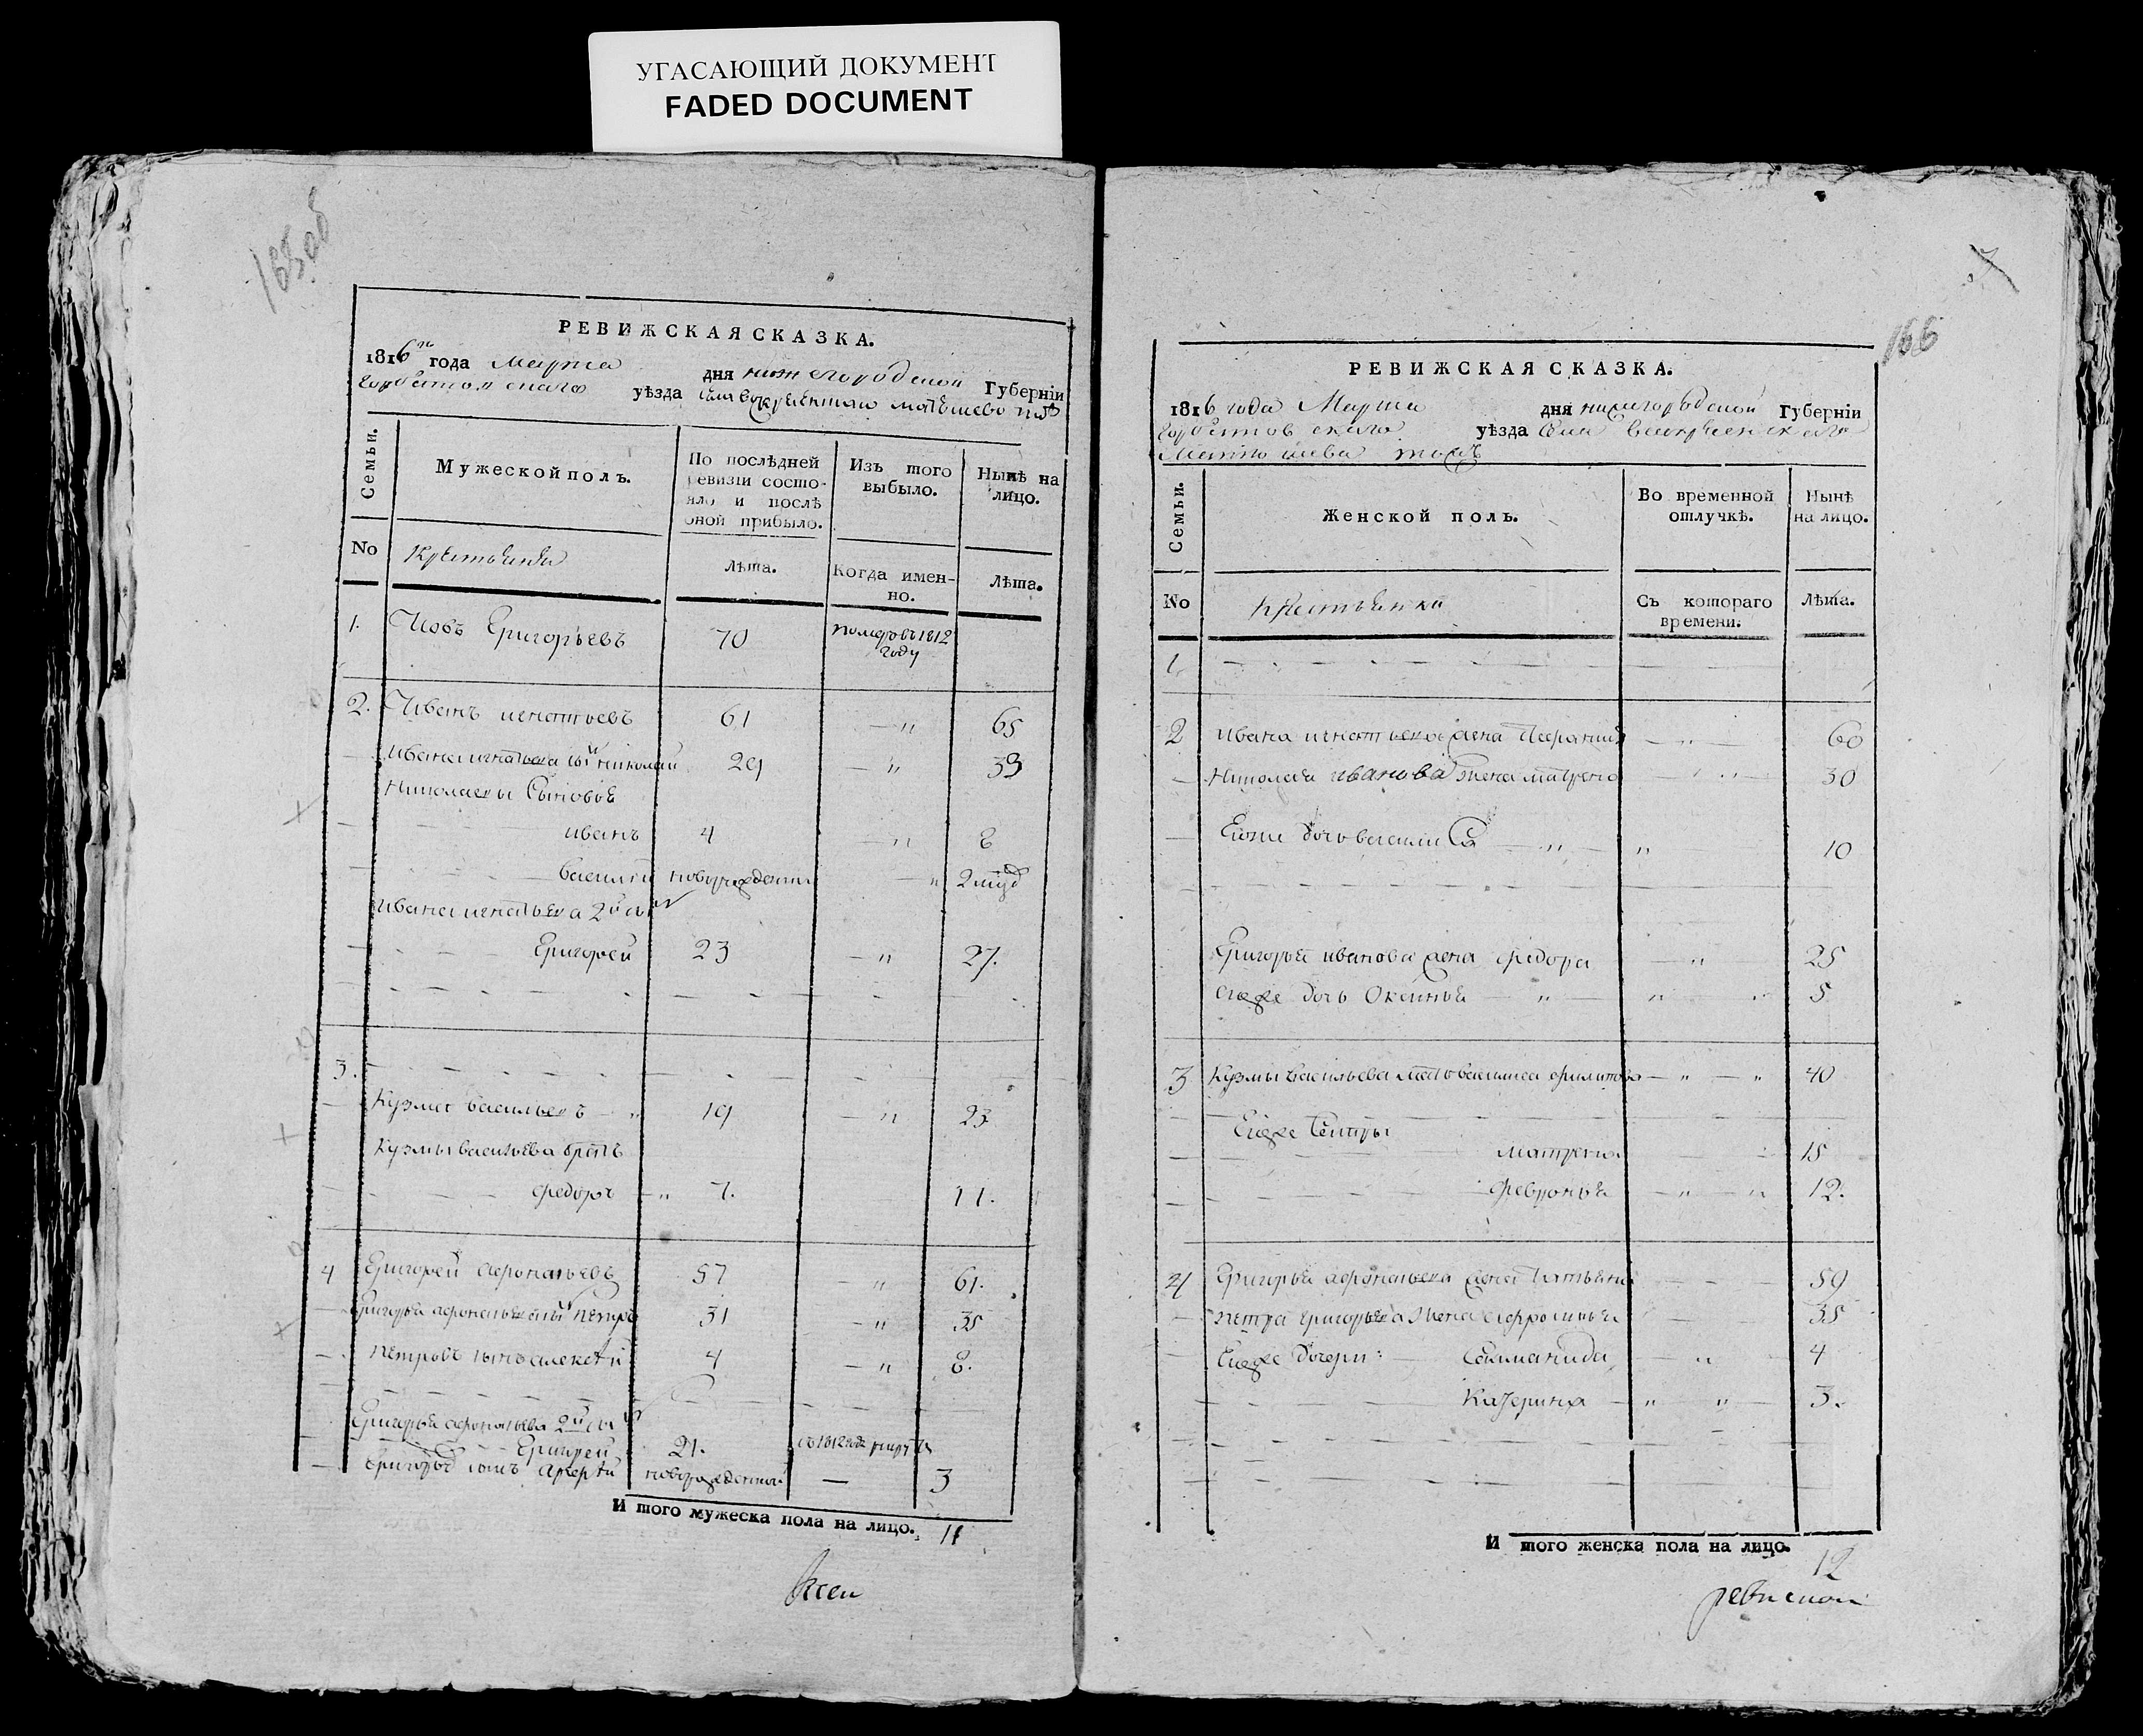 УГАСАЮЩИЙ ДОКУМЕНТ
FADED DOCUMENT
165об
РЕВИЖСКАЯ СКАЗКА.
1816го года Марта дня нижегородской Губерніи
горбатовскаго уѣзда села
Семьи. Мужеской полъ. По послѣдней ревизіи состояло и послѣ оной прибыло. Изъ того выбыло. Нынѣ на лицо.
No Крестьяня Лѣта. Когда именно. Лѣта.
1. Иовъ Григорьевъ 70 померъ въ 1812 году
2. Иванъ игнатьевъ 61 — " 65
— ивана игнатьева 1й николай 29 — " 33
Николаевы Сыновья
— иванъ 4 — " 8
— василий новорожденны — "
ивана игнатьева 2й сынъ
— Григорей 23 — " 27.
3.
— Кузма васильевъ — " 19 — " 23
Кузмы васильева братъ
— федоръ — " 7. 11.
4 Григорей афонасьевъ 57 — " 61.
— Григорья афонасьева сынъ петръ 31 — " 35
— петровъ сынъ алексѣй 4 — " 8.
Григорья афонасьева 2й сынъ
— Григорей 21. въ 1812 году рекру
— григорьевъ сынъ новорожденной — 3
И того мужеска пола на лицо. 11
166
РЕВИЖСКАЯ СКАЗКА.
1816 года Марта дня нижегородской Губерніи
горбатовскаго уѣзда села воскресенскаго
Семьи. Женской полъ. Во временной отлучкѣ. Нынѣ на лицо.
No крестьянки Съ котораго времени. Лѣта.
1.
2 ивана игнатьева жена — " — 60
— Николая иванова жена матрена 30
— Евоже дочь — " — " 10
Григорья иванова жена федора — " 25
Евоже дочь Оксинья — " — " " 5
3 Кузмы васильева мать василиса филипова — " — " 40
Евоже Сестры
— матрена 15
— февронья — " — " 12.
4 Григорья афонасьева жена татьяна — 59
— петра григорьева жена афросинья — 35
— Евоже дочери: — " 4
— Катерина — " " 3.
И того женска пола на лицо. 12
ревиской